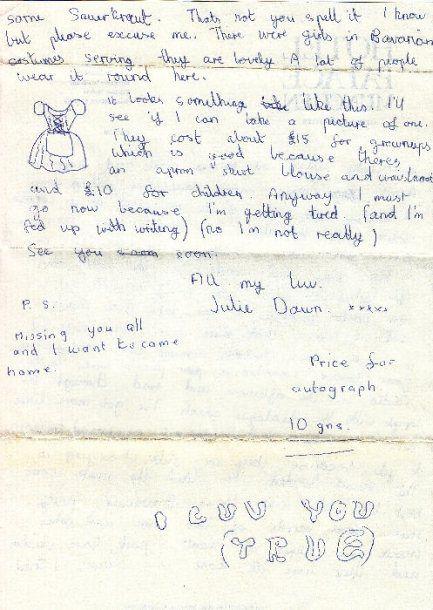 some Sauerkraut. Thats not you spell it I know
but please excuse me. There were girls in Bavarian
costumes serving they are lovely A lot of people
wear it round here.
it looks something like this. I'll
see if I can take a picture of one.
They cost about £15 for grownups
which is good because theres
an apron skirt blouse and
and £10 for children. Anyway I must
go now because I'm getting tired. (and I'm
fed up with writing) (no I'm not really)
See you soon.
All my luv.
Julie Dawn. xxxxx
P.S.
Missing you all
and I want to come
home.
Price for
autograph.
10 gns.
I LUV YOU
(TRUE)